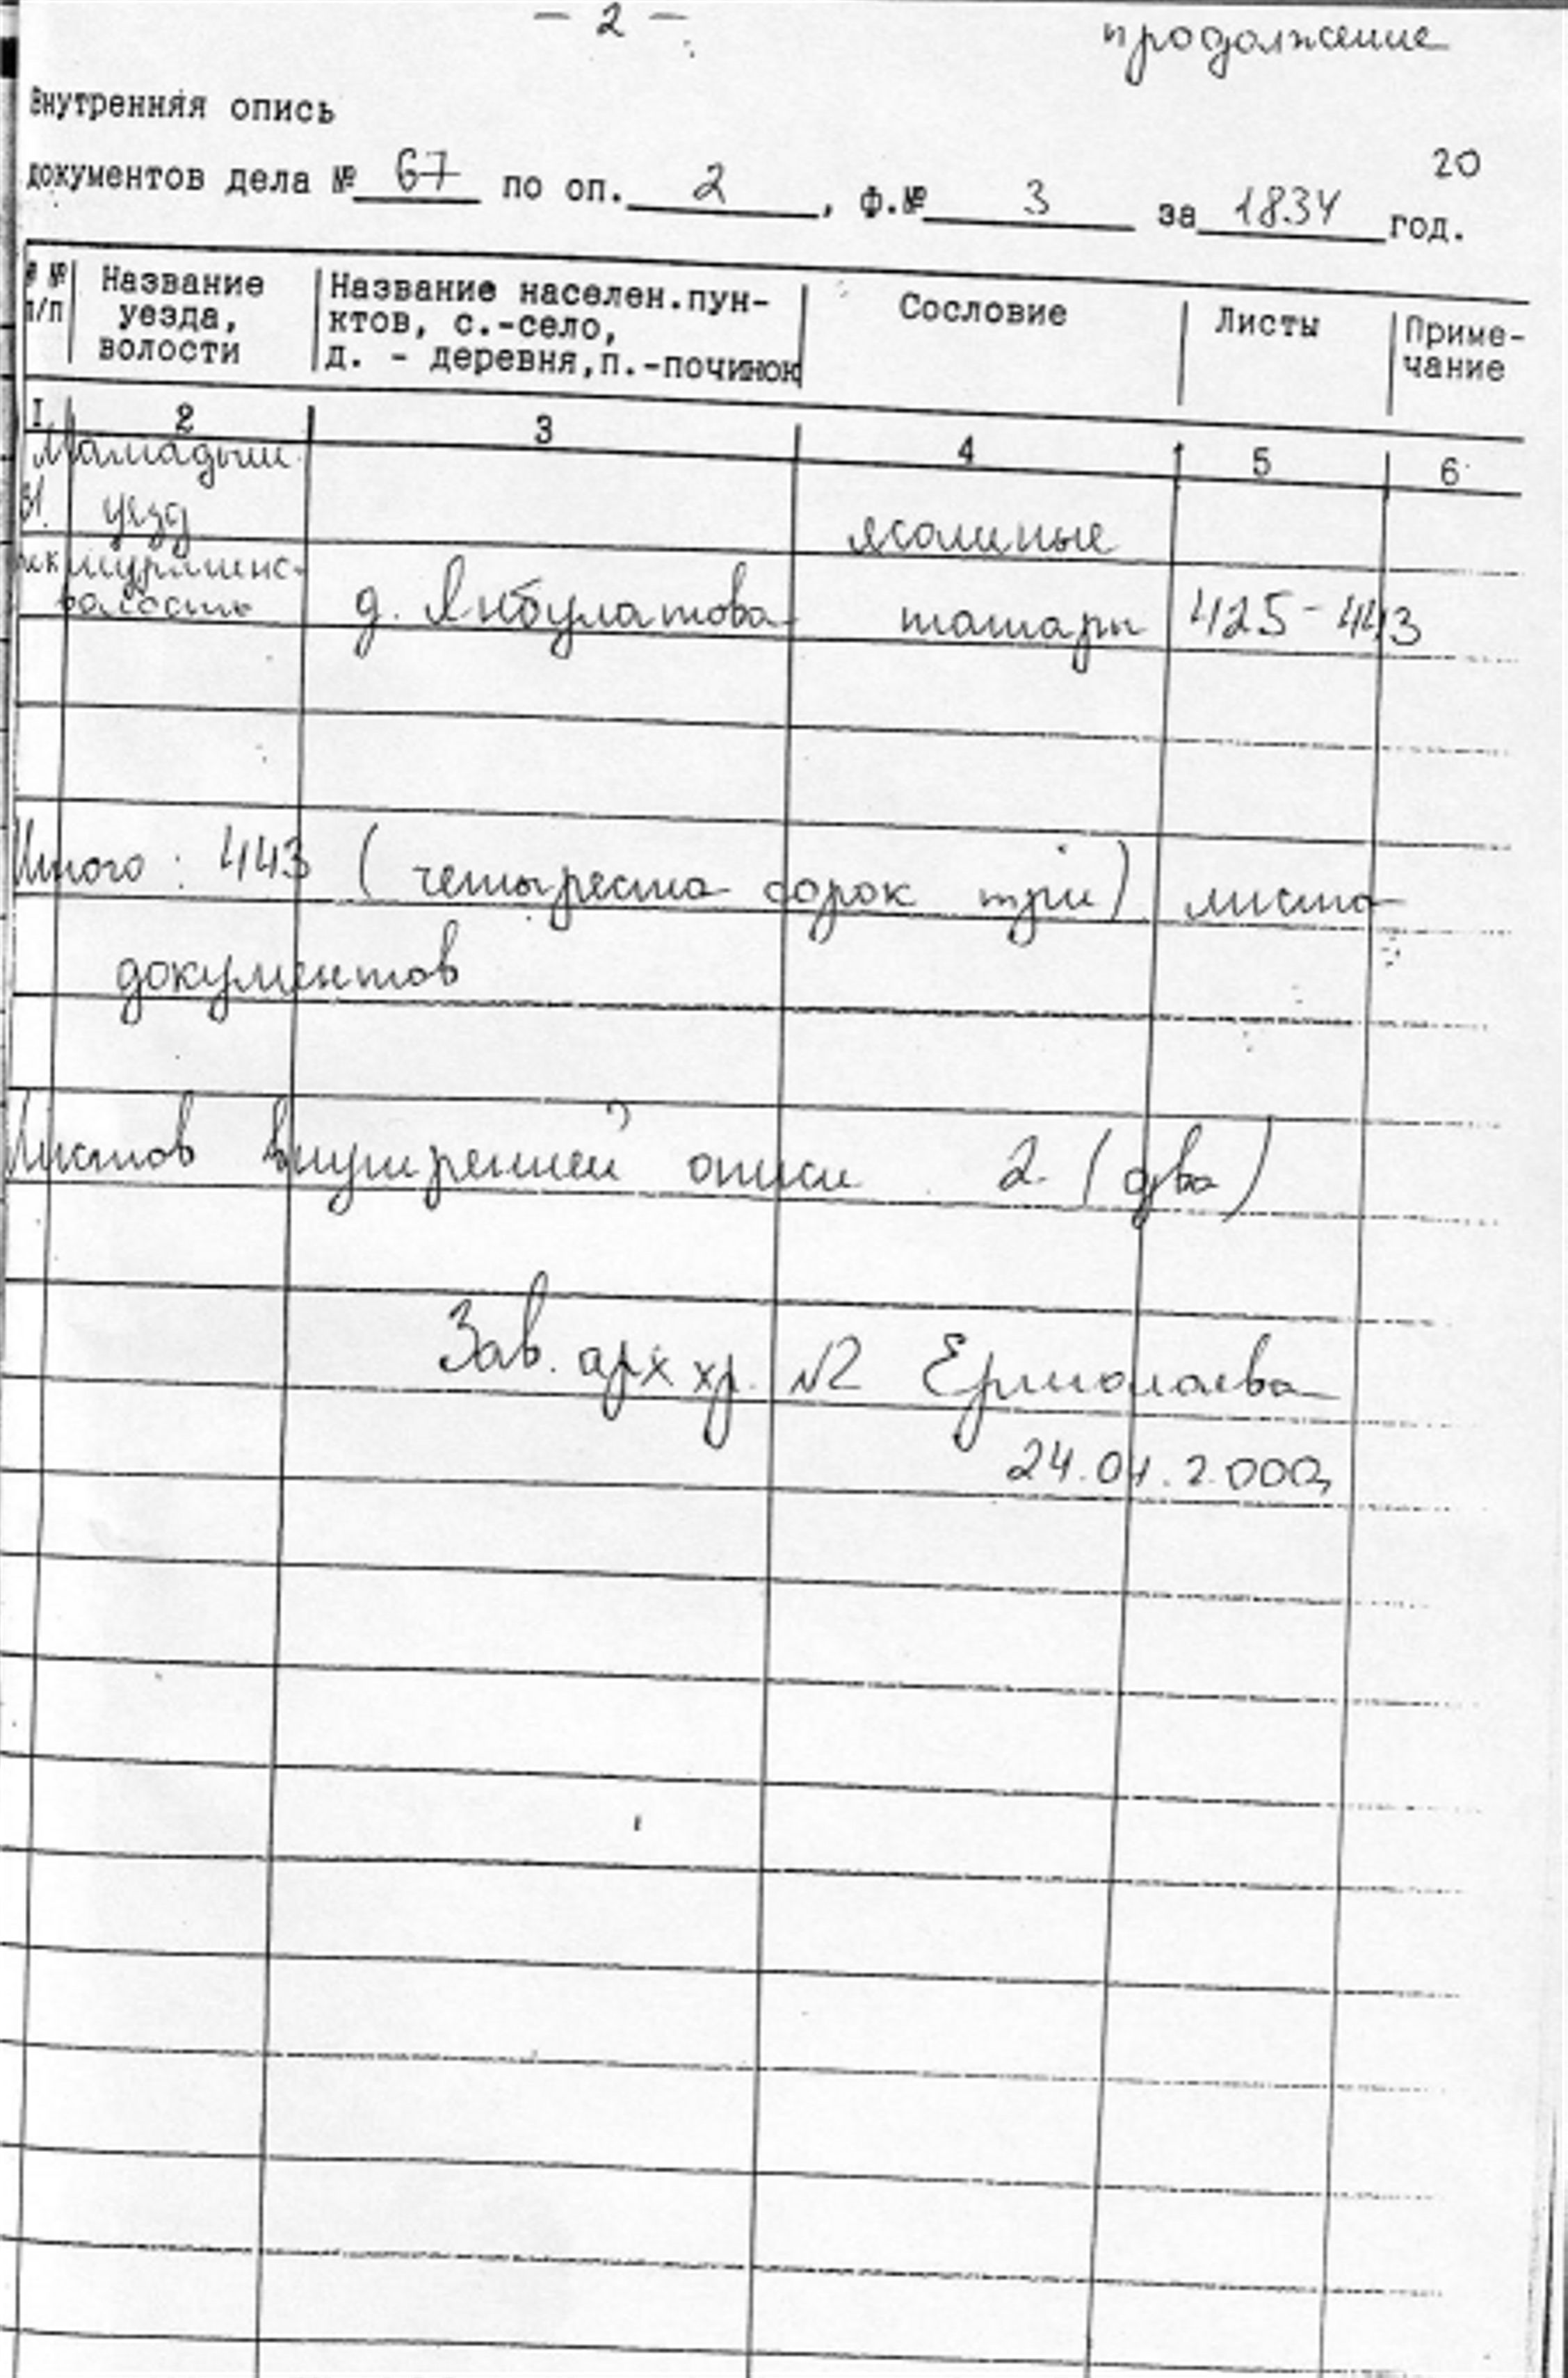 - 2 -
продолжение
Внутренняя опись
20
документов дела № 67 по оп. 2, ф.№ 3 за 1834 год.
№ №
п/п
Название
уезда,
волости
Название населен.пун-
ктов, с.-село,
д. - деревня,п.-починок
Сословие
Листы
Приме-
чание
I 2 3 4 5 6
Мамадыш.
уезд
ясашные
волость
д. Янбулатова татары 425-443
Итого: 443 (четыреста сорок три) листа
документов
Листов внутренней описи 2 (два)
Зав. арх хр. №2 Ермолаева